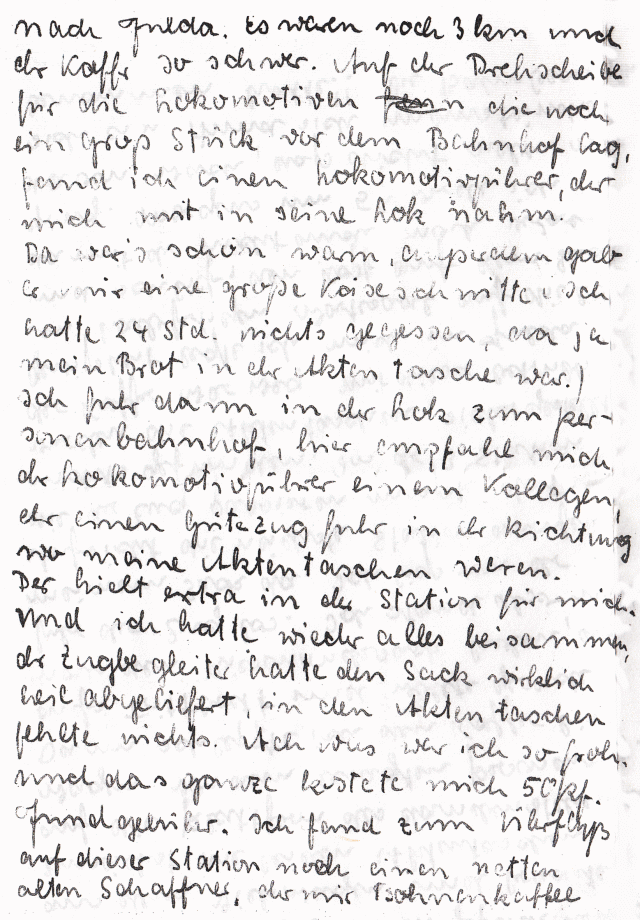 nach Fulda. Es waren noch 3 km und
der Koffr so schwer. Auf der Drehscheibe
für die Lokomotiven die noch
ein groß Stück vor dem Bahnhof lag,
fand ich einen Lokomotivführer, der
mich mit in seine Lok nahm.
Da war's schön warm, außerdem gab
er mir eine große Käseschnitte ich
hatte 24 Std. nichts gegessen, da ja
mein Brot in der Aktentasche war.)
Ich fuhr dann in der Lok zum Per-
sonenbahnhof, hier empfahl mich
der Lokomotivführer einem Kollegen,
der einen Güterzug fuhr in der Richtung
wo meine Aktentaschen waren.
Der hielt extra in der Station für mich.
Und ich hatte wieder alles beisammen,
der Zugbegleiter hatte den Sack wirklich
heil abgeliefert, in den Aktentaschen
fehlte nichts. Ach was war ich so froh.
Und das ganze kostete mich 50 Pf.
Fundgebühr. Ich fand zum Überfluß
auf dieser Station noch einen netten
alten Schaffner, der mir Bohnenkaffee